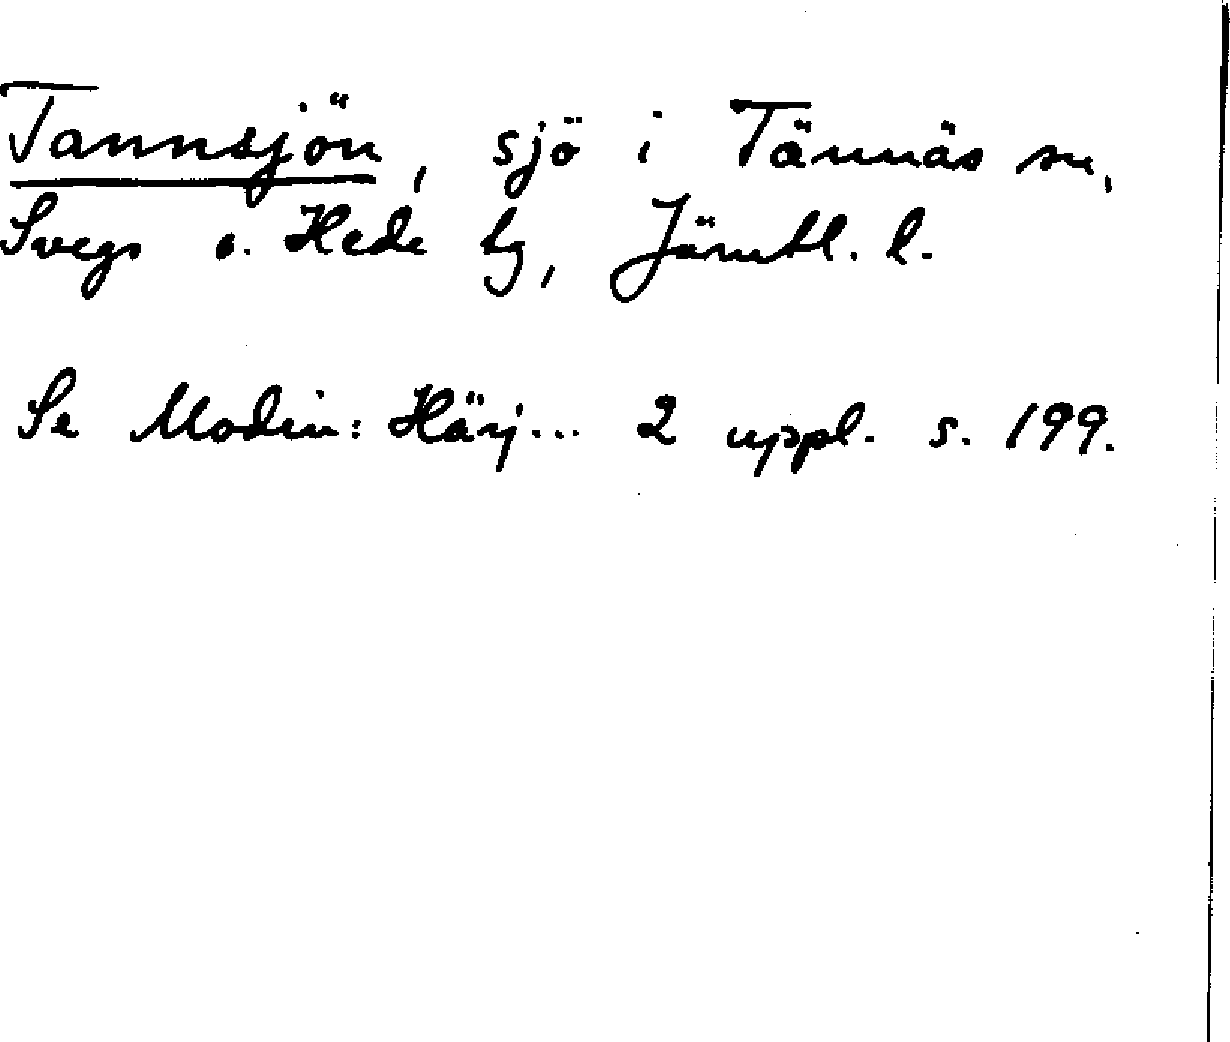 Tannsjön, sjö i Tännäs sn,
Svegs o. Hede tg, Jämtl. l.
Se Modin: Härj... 2 uppl. s. 199.